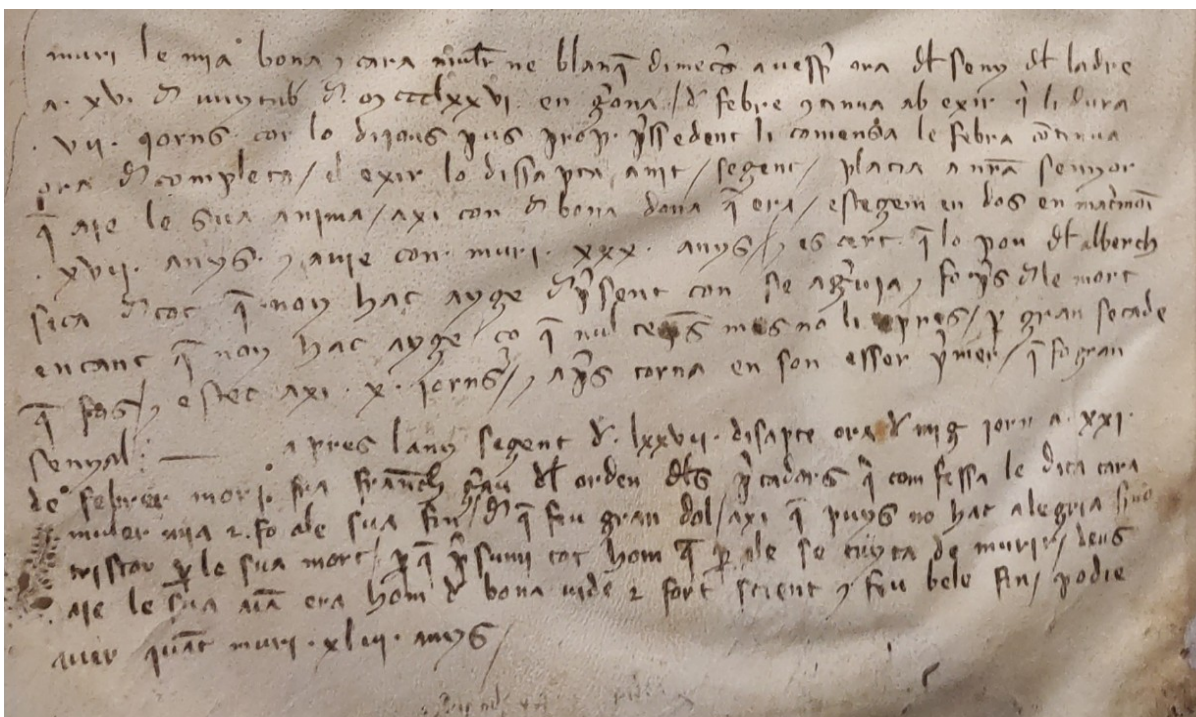 muri le mia bona e cara muler ne blanq̄ dimecs̄ a uesp̄ ora dl seny dl ladre
a . xv . d uuytub̄ d . m cccclxxvi . en gͥona / d febre contínua ab exir q̄ li dura
. vii . jorns . cor lo dijous pus prop . p̄ssedent li comensa le febra cōtinua
ora d completa / el exir lo dissapta , a nit / segent / placia a nr̄a senyor
q̄ aie le sua anima / axi con d bona dona q̄ era / estegem en dos en mat̄moī
. xvii . anys . e auie con . muri . xxx . anys / e es cert . q̄ lo pou dl alberch
sica d tot q̄ . noy hac ayge d p̄sent con se agͥuja , e fo p̄s d le mort
en tant q̄ noy hac ayge / ço q̄ nul temps mes no li es pres / p̄ gran secade
q̄ fos / e estec axi . x . jorns / e ap̄s torna en son esser p̄mer / q̄ fo gran
senyal : — apres lany segent d . lxxvii . disapte ora d mig jorn a . xxi .
de febrer mori . fra franc̄h gͣau dl orden dls p̄cadors q̄ comfessa le dita cara
muler mia 2 . fo a le sua fin / d q̄ feu gran dol / axi q̄ puys no hac alegria sino
tristor p̄ le sua mort / p̄ q̄ p̄sumi tot hom q̄ p̄ ale se cuyta de murir / deus
aie le sua aīa era hom d bona uide 2 fort scient e feu bele fin / podie
auer quāt muri . xlvii . anys /